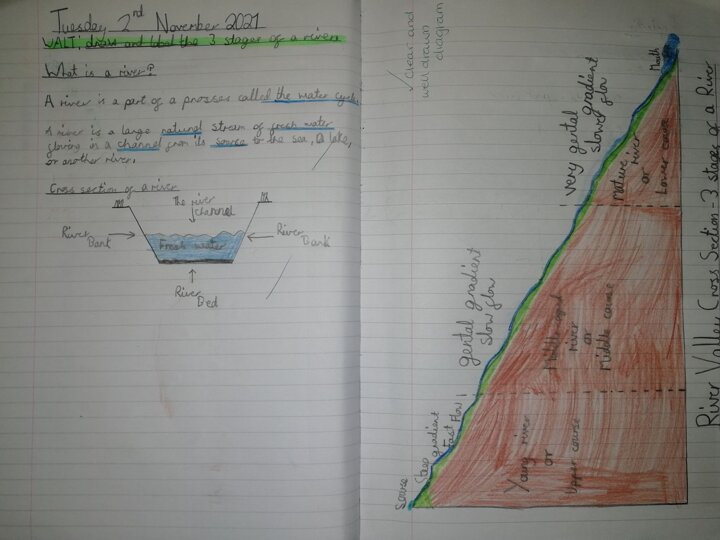 Tuesday 2nd November 2021
WALT: draw and label the 3 stages of a river
What is a river?
A river is a part of a prosses called the water cycle
A river is a large natural stream of fresh water
flowing in a channel from its source to the sea, a lake,
or another river.
Cross section of a river
the river
channel
River
Bank
Fresh water
River
Bank
River
Bed
✓ clear and
well drawn
diagram
River Valley Cross Section - 3 stages of a River
Source
Steep gradient
Fast Flow
Yang river
or
Upper course
gental gradient
slow flow
Middle aged
river
or
Middle course
very gental gradient
slower flow
mature river
or
Lower course
Mouth